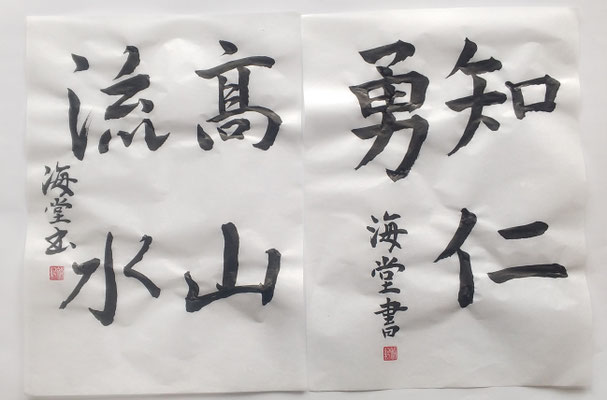 知仁
勇
海堂書
高山
流水
海堂书